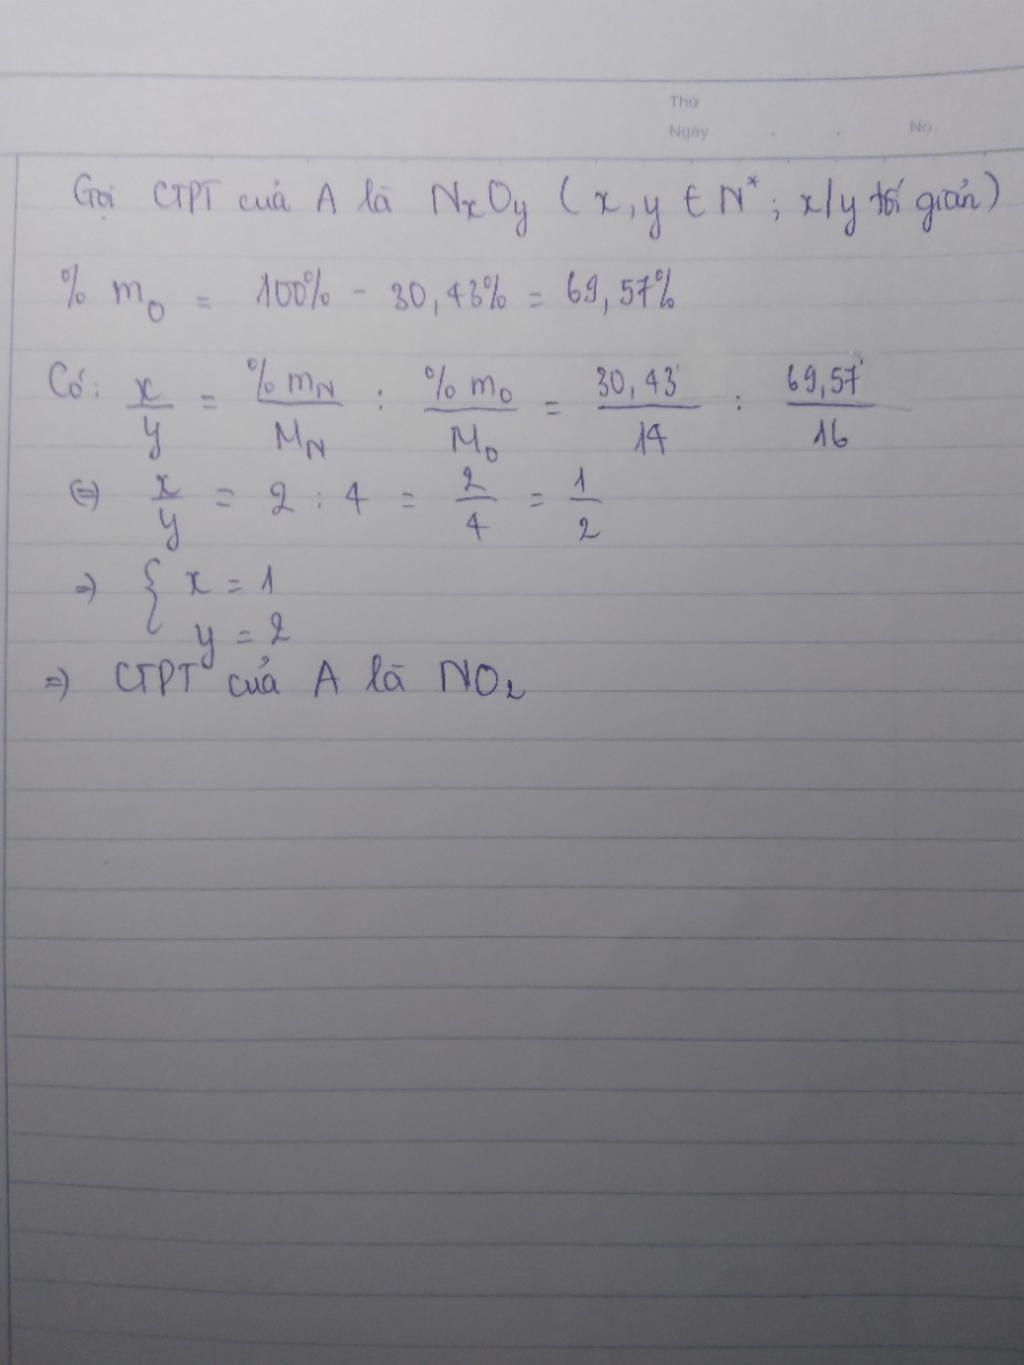 Thứ
Ngày . . No.
Gọi CTPT của A là NxOy (x, y ∈ N*; x/y tối giản)
% mO = 100% - 30,43% = 69,57%
Có: x/y = % mN / MN : % mO / MO = 30,43 / 14 : 69,57 / 16
⇔ x/y = 2 : 4 = 2/4 = 1/2
⇒ { x = 1
y = 2
⇒ CTPT của A là NO2